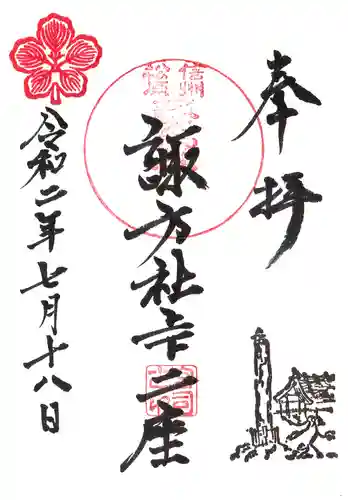 奉拝
信州
諏方社
二座
令和二年七月十八日